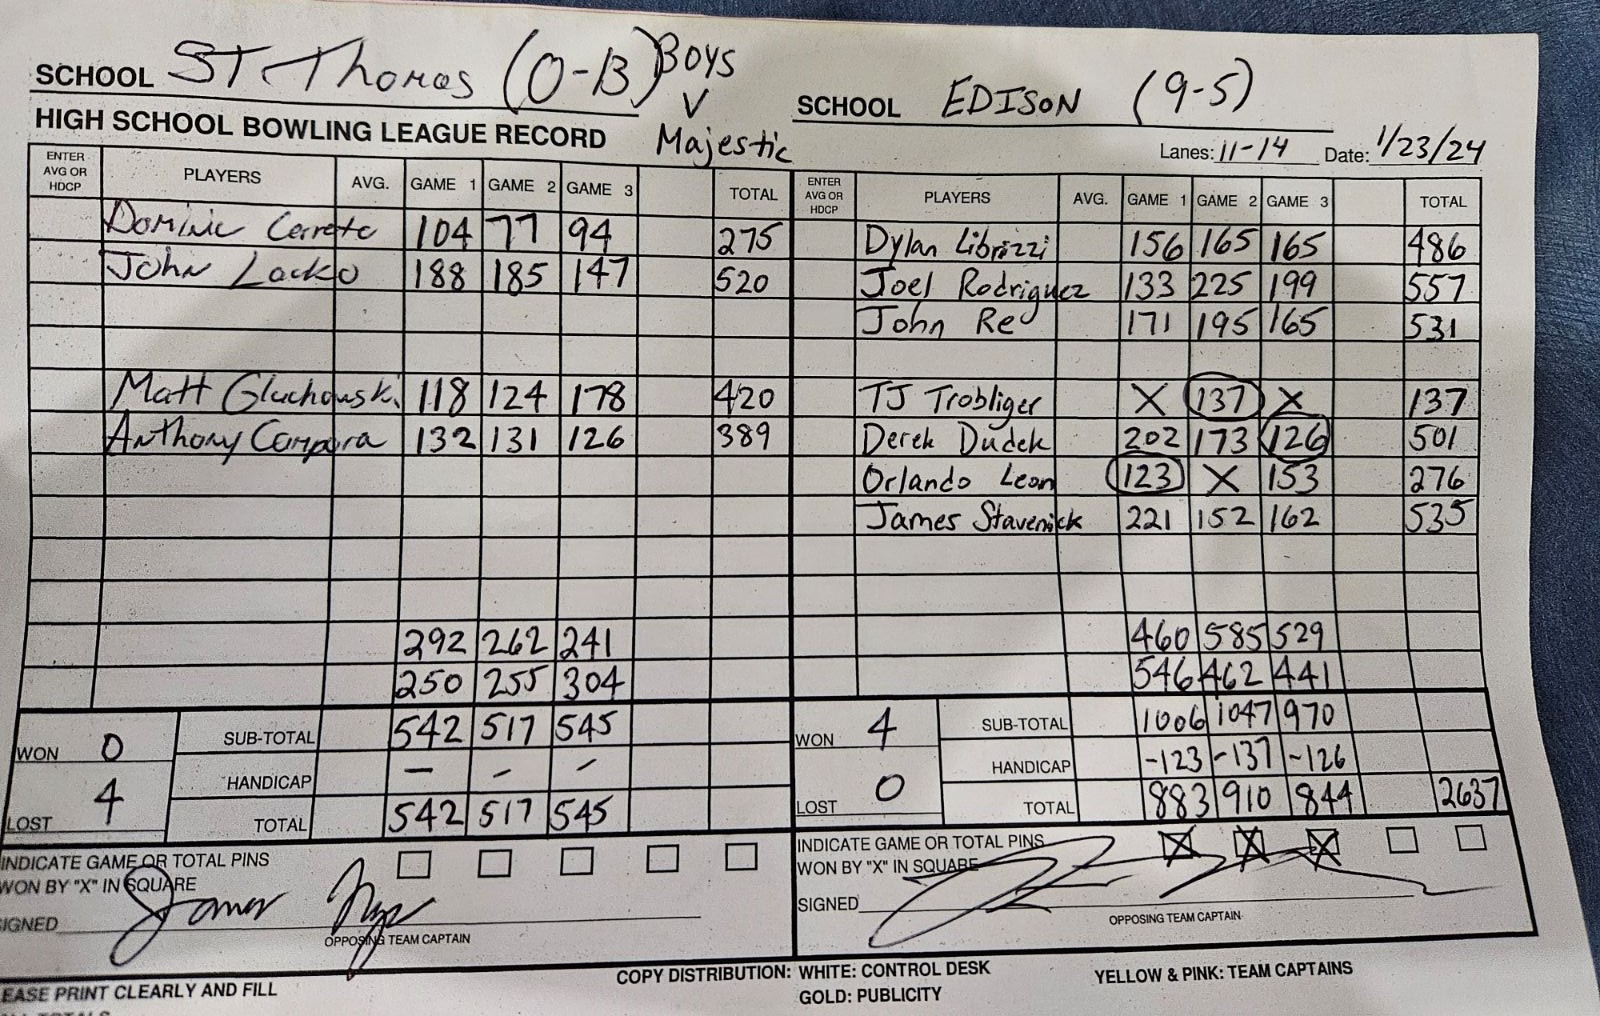 SCHOOL ST Thomas (0-13) Boys
V
Majestic
SCHOOL EDISON (9-5)
HIGH SCHOOL BOWLING LEAGUE RECORD
Lanes: 11-14 Date: 1/23/24
ENTER AVG OR HDCP PLAYERS AVG. GAME 1 GAME 2 GAME 3 TOTAL
Dominic Cerreto 104 77 94 275
John Lacko 188 185 147 520
Matt Gluchowski 118 124 178 420
Anthony Campora 132 131 126 389
292 262 241
250 255 304
WON 0 SUB-TOTAL 542 517 545
HANDICAP - - -
LOST 4 TOTAL 542 517 545
INDICATE GAME OR TOTAL PINS
WON BY "X" IN SQUARE
SIGNED James
OPPOSING TEAM CAPTAIN
ENTER AVG OR HDCP PLAYERS AVG. GAME 1 GAME 2 GAME 3 TOTAL
Dylan Librizzi 156 165 165 486
Joel Rodriguez 133 225 199 557
John Re 171 195 165 531
TJ Trobliger X 137 X 137
Derek Dudek 202 173 126 501
Orlando Leon 123 X 153 276
James Stavenick 221 152 162 535
460 585 529
546 462 441
WON 4 SUB-TOTAL 1006 1047 970
HANDICAP -123 -137 -126
LOST 0 TOTAL 883 910 844 2637
INDICATE GAME OR TOTAL PINS X X X
WON BY "X" IN SQUARE
SIGNED
OPPOSING TEAM CAPTAIN
EASE PRINT CLEARLY AND FILL
COPY DISTRIBUTION: WHITE: CONTROL DESK YELLOW & PINK: TEAM CAPTAINS
GOLD: PUBLICITY